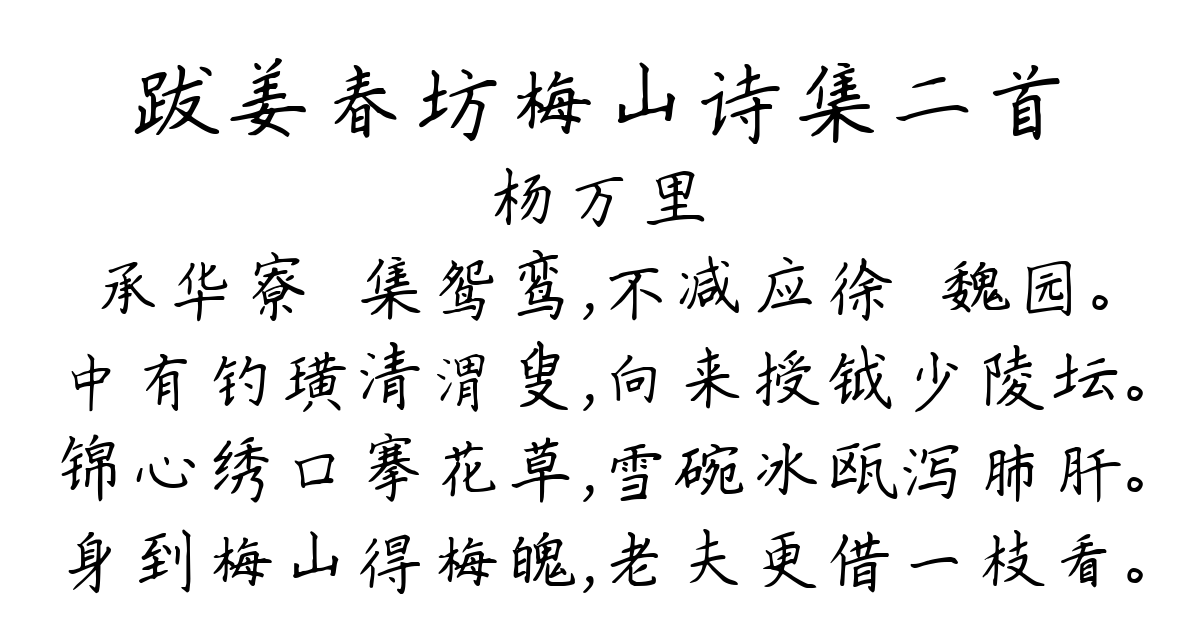 跋姜春坊梅山诗集二首
杨万里
承华寮 集鸳鸾,不减应徐 魏园。
中有钓璜清渭叟,向来授钺少陵坛。
锦心绣口搴花草,雪碗冰瓯泻肺肝。
身到梅山得梅魄,老夫更借一枝看。